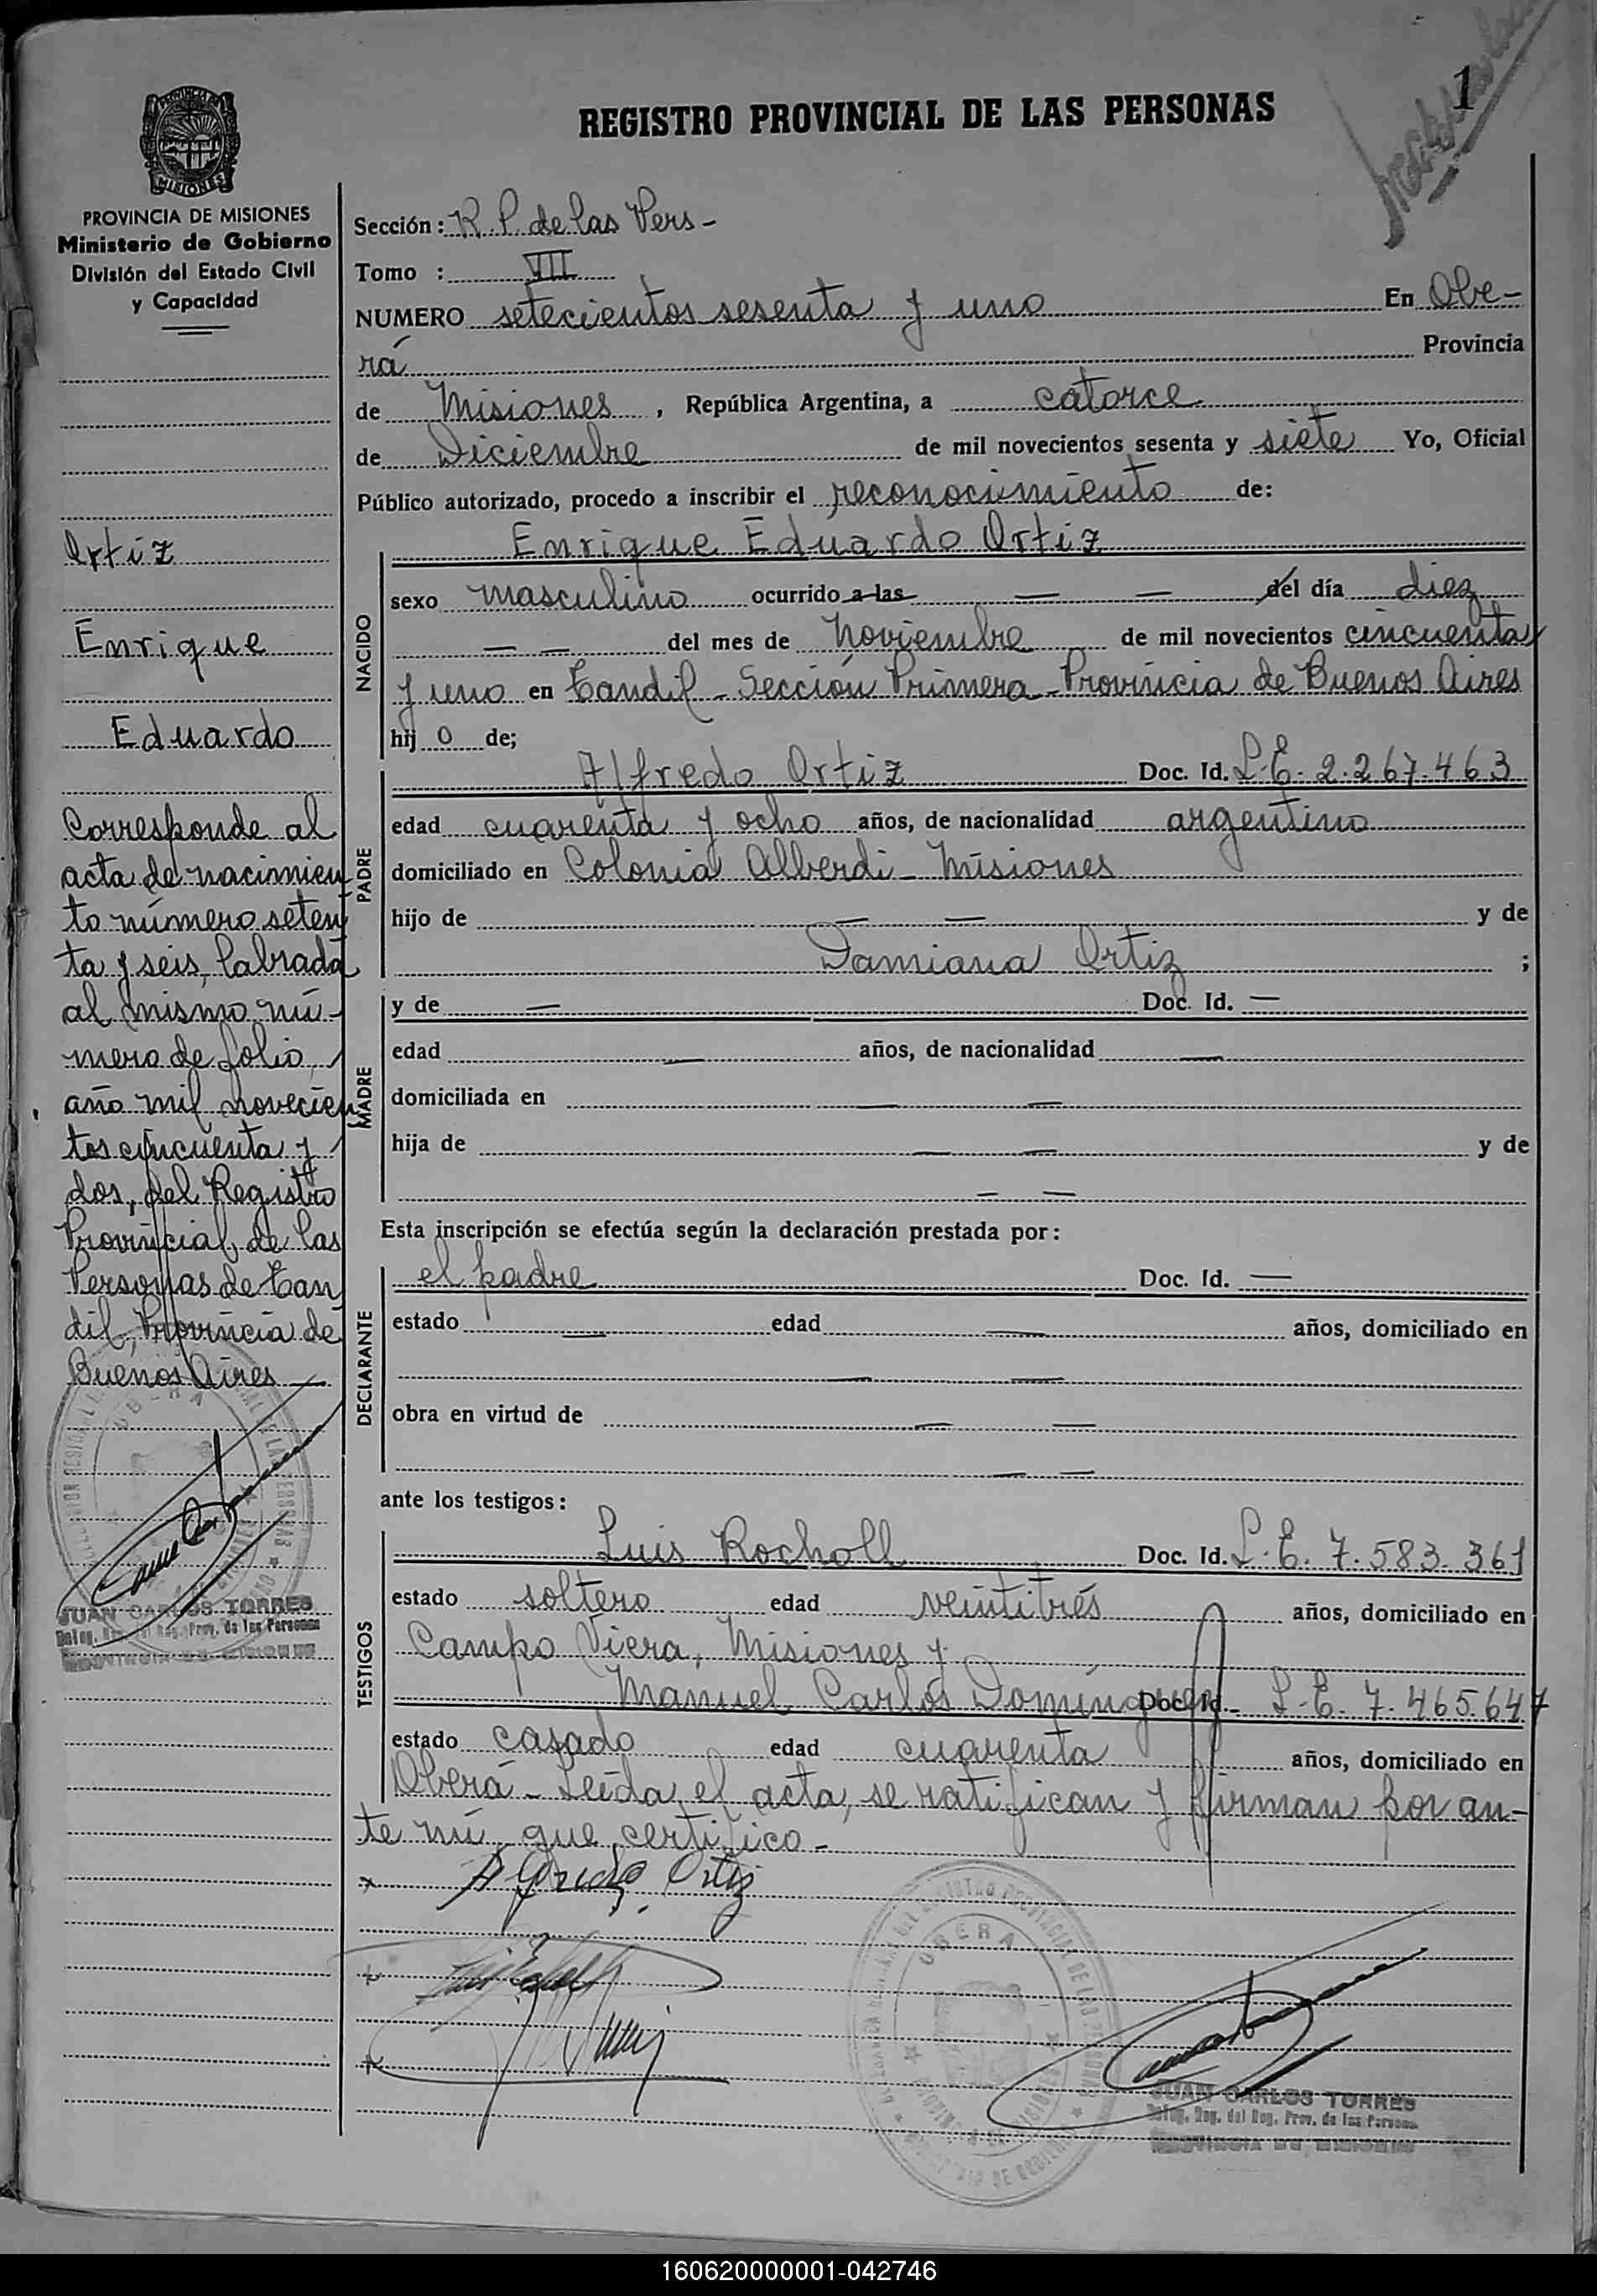 1
REGISTRO PROVINCIAL DE LAS PERSONAS
PROVINCIA DE MISIONES
Ministerio de Gobierno
División del Estado Civil
y Capacidad
Ortiz
Enrique
Eduardo
Corresponde al
acta de nacimien
to número seten
ta y seis, labrada
al mismo nú-
mero de folio,
año mil novecien
tos cincuenta y
dos, del Registro
Provincial de las
Personas de Tan
dil, Provincia de
Buenos Aires
JUAN CARLOS TORRES
Sección: R. P. de las Pers-
Tomo : VII
NUMERO setecientos sesenta y uno En Obe-
rá Provincia
de Misiones, República Argentina, a catorce
de Diciembre de mil novecientos sesenta y siete Yo, Oficial
Público autorizado, procedo a inscribir el reconocimiento de:
NACIDO
Enrique Eduardo Ortiz
sexo masculino ocurrido a las — — del día diez
— — del mes de Noviembre de mil novecientos cincuenta
y uno en Tandil - Sección Primera - Provincia de Buenos Aires
hij o de;
PADRE
Alfredo Ortiz Doc. Id. L.E. 2.267.463
edad cuarenta y ocho años, de nacionalidad argentino
domiciliado en Colonia Alberdi - Misiones
hijo de — — y de
Damiana Ortiz ;
MADRE
y de — Doc. Id. —
edad — años, de nacionalidad —
domiciliada en — —
hija de — — y de
— —
Esta inscripción se efectúa según la declaración prestada por:
DECLARANTE
el padre Doc. Id. —
estado — edad — años, domiciliado en
— —
obra en virtud de — —
— —
ante los testigos:
TESTIGOS
Luis Rocholl Doc. Id. L.E. 7.583.361
estado soltero edad veintitrés años, domiciliado en
Campo Viera, Misiones y
Manuel Carlos Domínguez Doc. Id. - L.E. 7.465.647
estado casado edad cuarenta años, domiciliado en
Oberá - Leída el acta, se ratifican y firman por an-
te mí, que certifico -
x Alfredo Ortiz
OBERA
JUAN CARLOS TORRES
160620000001-042746